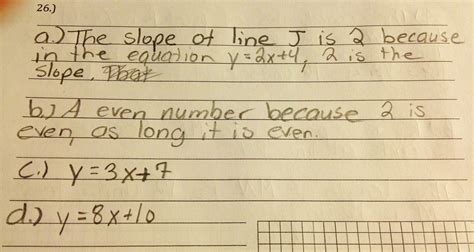 26.)
a.) The slope of line J is 2 because
in the equation y=2x+4, 2 is the
slope.
b.) A even number because 2 is
even, as long it is even.
c.) y=3x+7
d.) y=8x+10